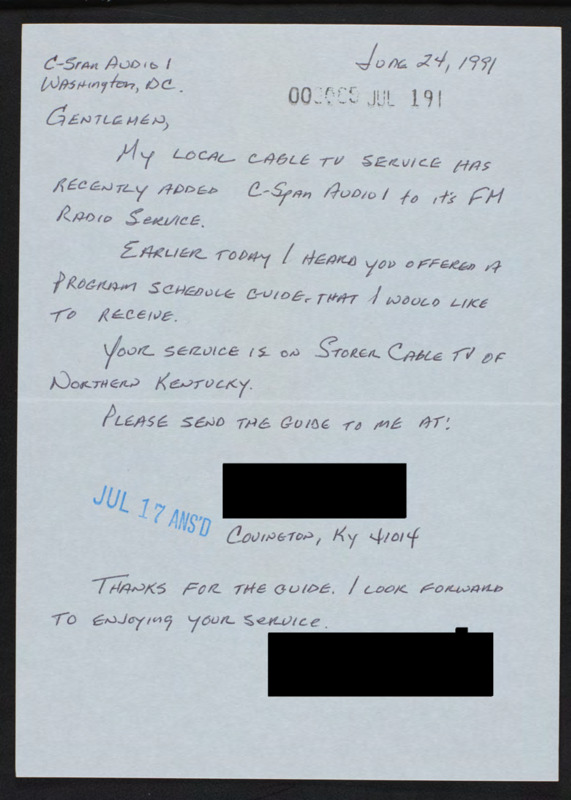 C-Span Audio 1
Washington, DC.
June 24, 1991
JUL 191
Gentlemen,
My local cable TV service has
recently added C-Span Audio 1 to it's FM
Radio Service.
Earlier today I heard you offered a
program schedule guide, that I would like
to receive.
Your service is on Storer Cable TV of
Northern Kentucky.
Please send the guide to me at:
JUL 17 ANS'D
Covington, Ky 41014
Thanks for the guide. I look forward
to enjoying your service.